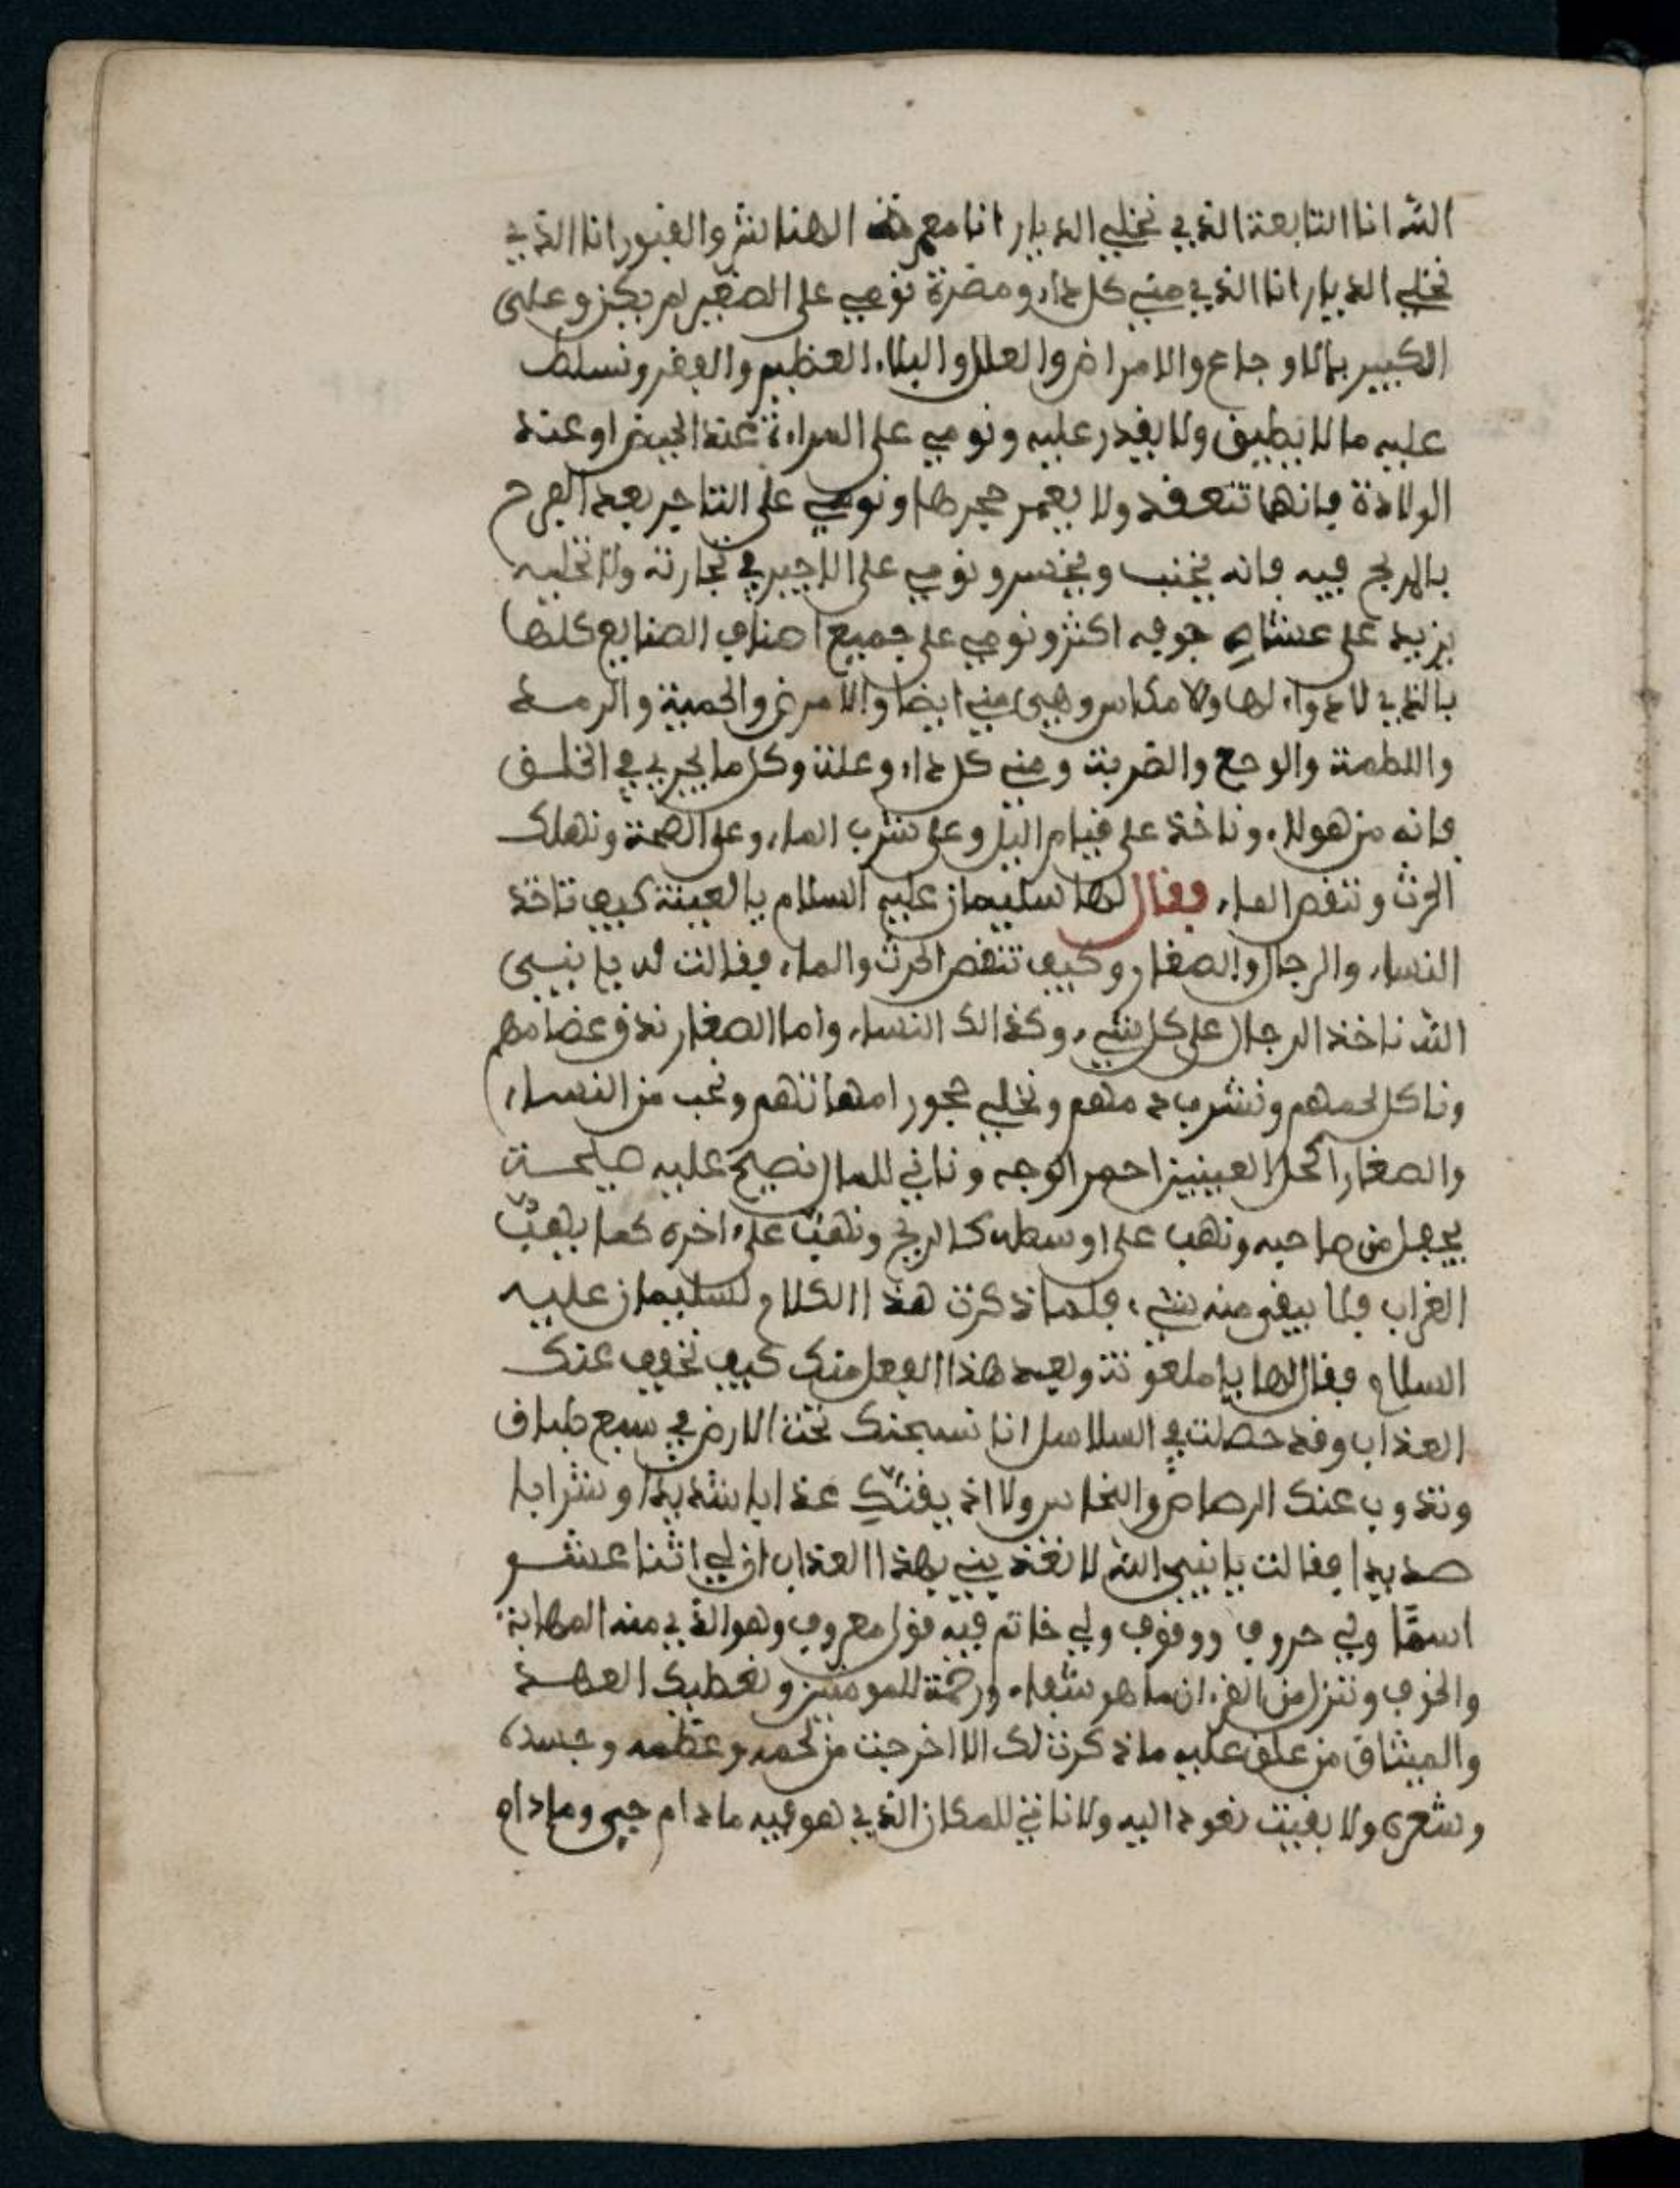 الله انا التابعة الذي نخلي الديار انا معمرة الهنا لنثر والقبور انا الذي
نخلي الديار انا الذي مني كل داء ومضرة نومي على الصغير لم يكن وعلى
الكبير بالاوجاع والامراض والعلل والبلاء العظيم والفقر ونسلط
عليه ما لا يطيق ولا يقدر عليه ونومي على المراءة عند الحيض او عند
الولادة فانها تتعقد ولا يعمر حجرها ونومي على التاجر بعد الفرح
بالربح فيه فانه يخنب ويخسر ونومي على الاجير في تجارته ولا نخليه
يزيد على عشاء جوفه اكثر ونومي على جميع اصناف الصنايع كلها
بالذي لا دواء لها ولا مكاس وهيى مني ايضا والامرض والحمية والرمد
واللطمة والوجع والضربة ومني كل داء وعلة وكل ما يجري في الخلق
فانه من هولاء وناخذ على قيام اليل وعلى شرب الماء وعلى الصمة ونهلك
الحرث وننقص الماء فقال لها سليمان عليه السلام يا لعينة كيف تاخذ
النساء والرجال والصغار وكيف تنقص الحرث والماء فقالت له يا نبيي
الله ناخذ الرجال على كل شيء وكذالك النساء واما الصغار ندق عضامهم
وناكل لحمهم ونشرب دمهم ونخلي حجور امهاتهم ونحب من النساء
والصغار اكحل العينين احمر الوجه وناتي للمال نصيح عليه صيحة
يجفل من صاحبه ونهب على اوسطه كالريح ونهب على اخره كما يهب
الغراب فلا يبقى منه شيء فلما ذكرت هذا الكلام لسليمان عليه
السلام فقال لها يا ملعونة وبعد هذا الفعل منك كيف نخفف عنك
العذاب وقد حصلت في السلاسل انا نسجنك تحت الارض في سبع طباق
ونذوب عنك الرصاص والنحاس ولا اذيقنك عذابا شديدا وشرابا
صديدا فقالت يا نبيى الله لا تعذبني بهذا العذاب ان لي اثنا عشر
اسمًا ولي حروف ووقوف ولي خاتم فيه قول معروف وهو الذي منه المهابة
والخوف وننزل من القرءان ما هو شفاء ورحمة للمومنين ونعطيك العهد
والميثاق من علق عليه ما ذكرت لك الا اخرجت من لحمه وعظمه وجسده
وشعره ولا بقيت نعود اليه ولا ناتي للمكان الذي هو فيه ما دام حيى وما دام